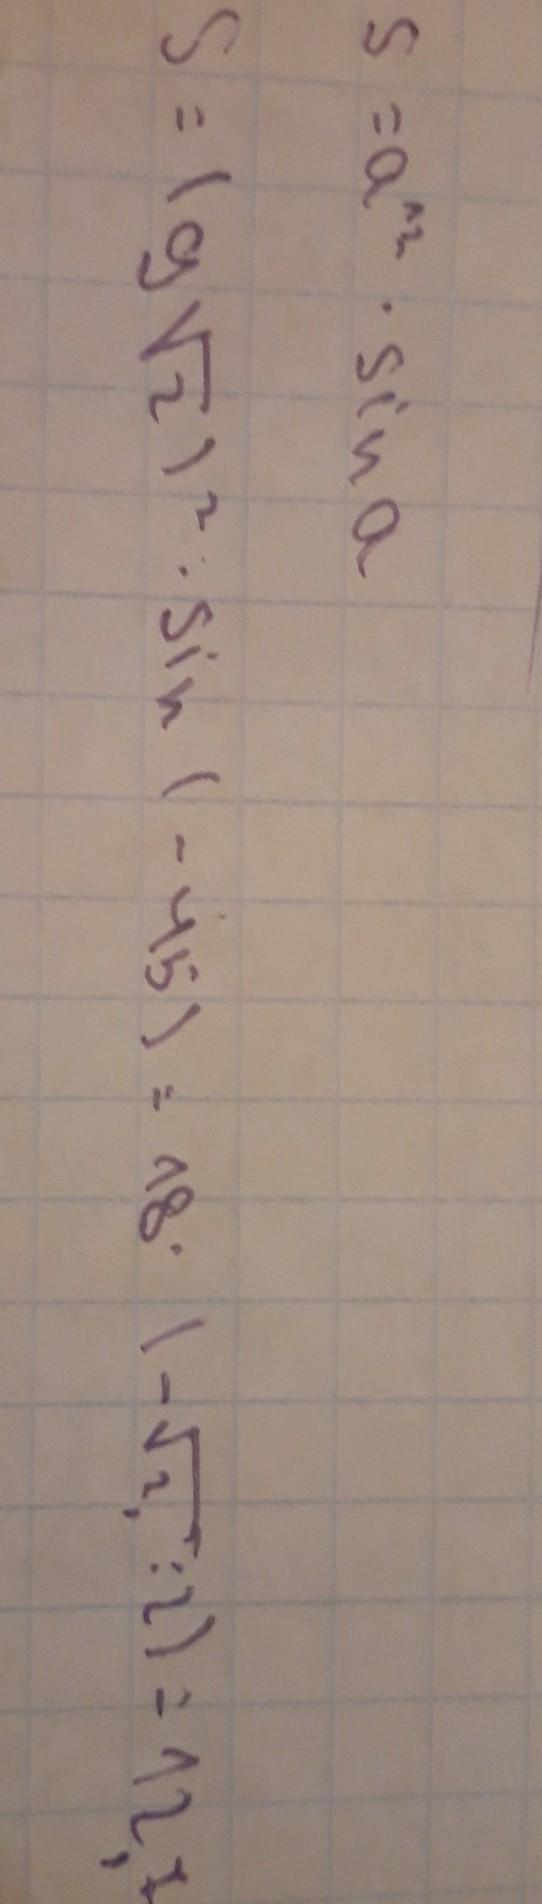 S = a² · sin a
S = (9√2)² · sin (-45) = 18 · (-√2, : 2) = 12,7